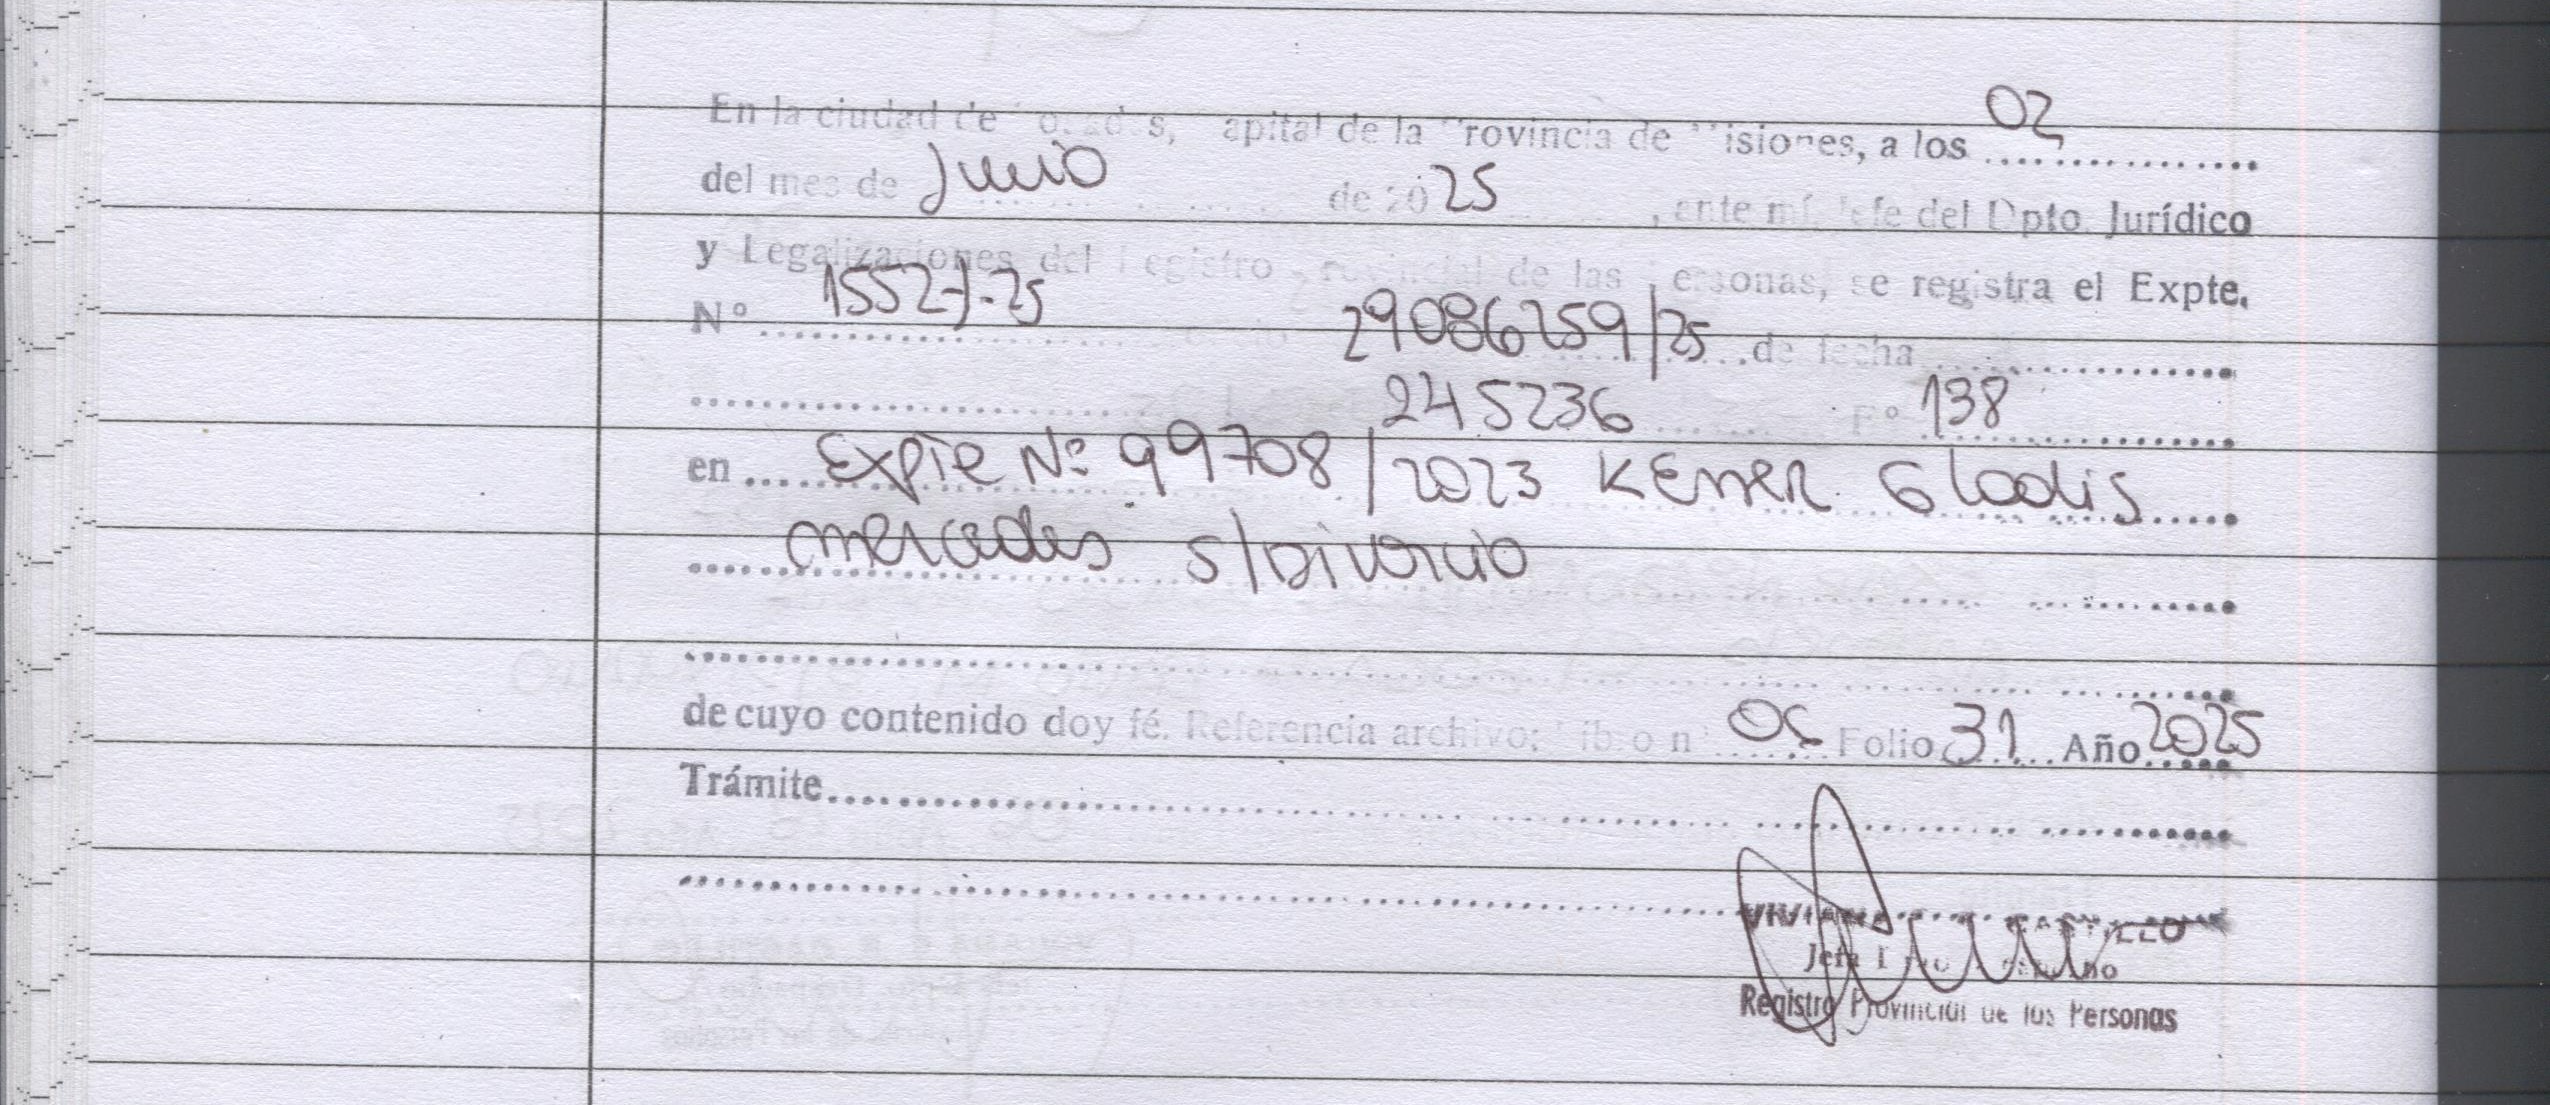 En la ciudad de Posadas, Capital de la Provincia de Misiones, a los 02
del mes de Junio de 2025, ante mí, Jefe del Dpto. Jurídico
y Legalizaciones del Registro Provincial de las Personas, se registra el Expte.
Nº 1552-J-25 29086259/25 de fecha
245236 Fº 138
en Expte Nº 99708/2023 Gladis
mercedes s/Divorcio
de cuyo contenido doy fé. Referencia archivo: Libro nº Folio 31 Año 2025
Trámite
CASTILLO
Jefa
Registro Provincial de las Personas